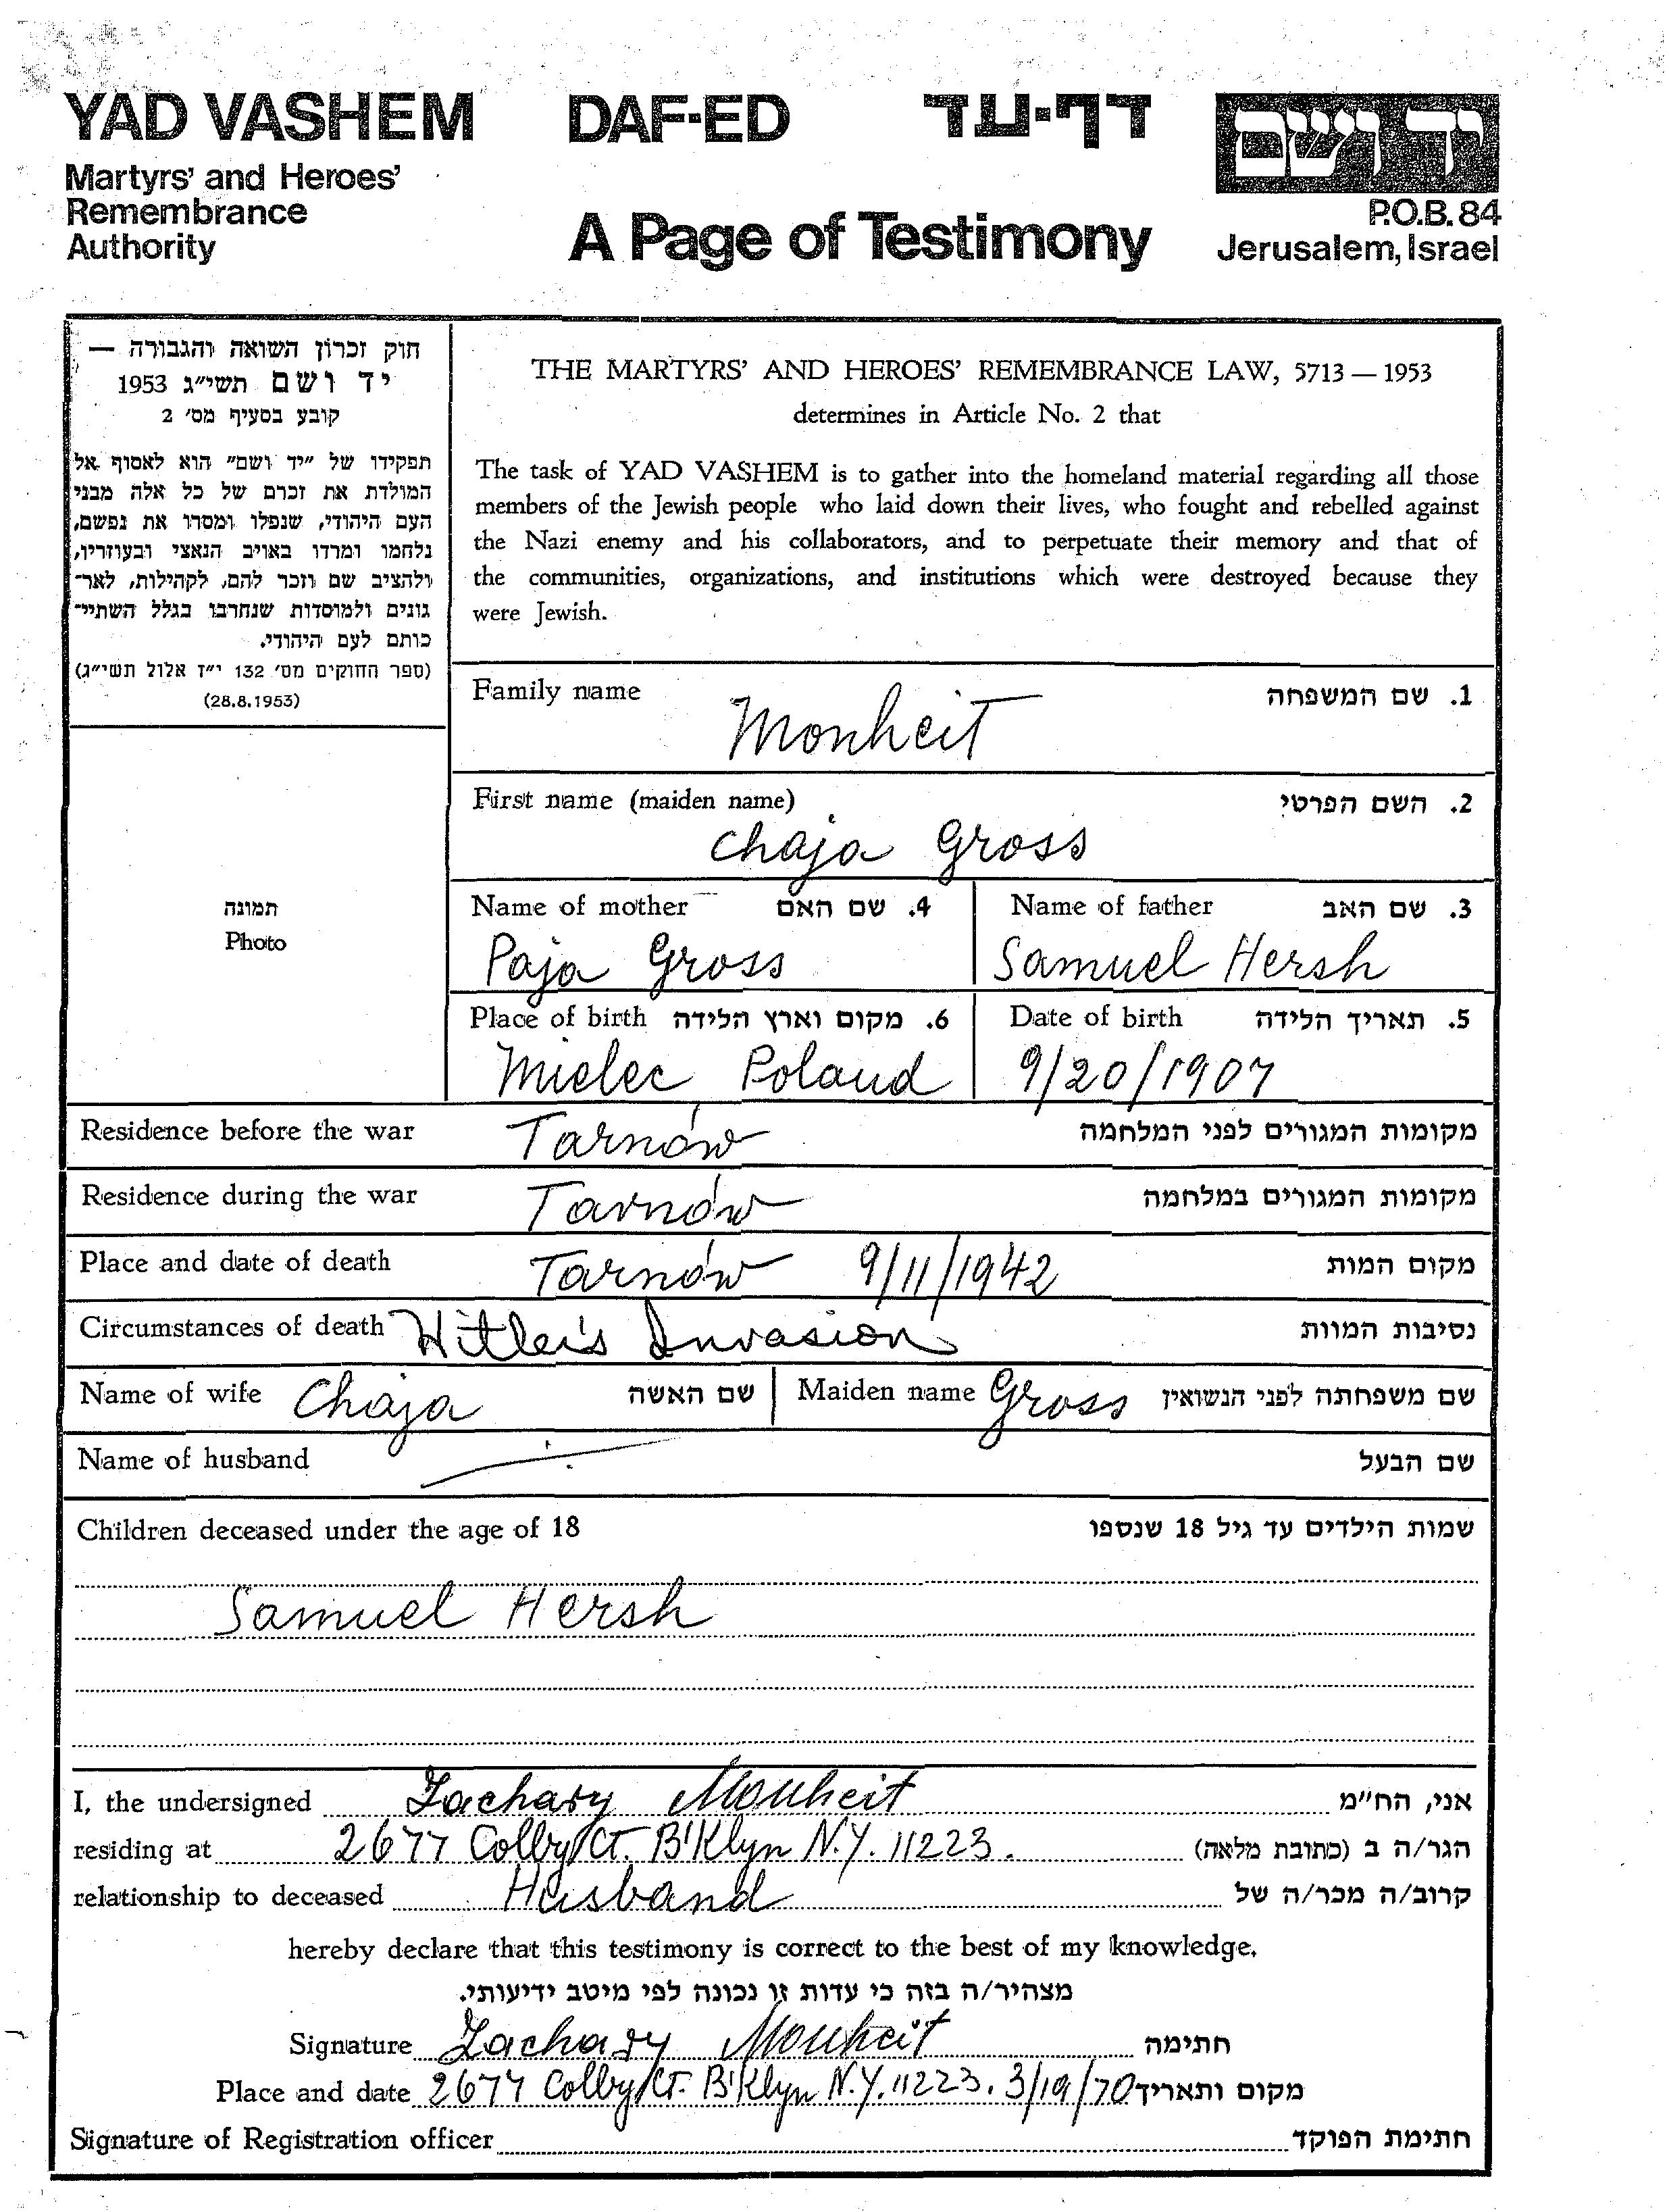 YAD VASHEM DAF-ED דף-עד יד ושם
Martyrs' and Heroes'
Remembrance
Authority
A Page of Testimony
P.O.B. 84
Jerusalem, Israel
חוק זכרון השואה והגבורה —
יד ושם תשי״ג 1953
קובע בסעיף מס׳ 2
תפקידו של ״יד ושם״ הוא לאסוף אל
המולדת את זכרם של כל אלה מבני
העם היהודי, שנפלו ומסרו את נפשם,
נלחמו ומרדו באויב הנאצי ובעוזריו,
ולהציב שם וזכר להם, לקהילות, לאר־
גונים ולמוסדות שנחרבו בגלל השתיי־
כותם לעם היהודי.
(ספר החוקים מס׳ 132 י״ז אלול תשי״ג)
(28.8.1953)
THE MARTYRS' AND HEROES' REMEMBRANCE LAW, 5713 — 1953
determines in Article No. 2 that
The task of YAD VASHEM is to gather into the homeland material regarding all those
members of the Jewish people who laid down their lives, who fought and rebelled against
the Nazi enemy and his collaborators, and to perpetuate their memory and that of
the communities, organizations, and institutions which were destroyed because they
were Jewish.
תמונה
Photo
Family name 1. שם המשפחה
Monheit
First name (maiden name) 2. השם הפרטי
Chaja Gross
Name of mother 4. שם האם Name of father 3. שם האב
Paja Gross Samuel Hersh
Place of birth 6. מקום וארץ הלידה Date of birth 5. תאריך הלידה
Mielec Poland 9/20/1907
Residence before the war Tarnów מקומות המגורים לפני המלחמה
Residence during the war Tarnów מקומות המגורים במלחמה
Place and date of death Tarnów 9/11/1942 מקום המות
Circumstances of death Hitler's Invasion נסיבות המוות
Name of wife Chaja שם האשה Maiden name Gross שם משפחתה לפני הנשואין
Name of husband שם הבעל
Children deceased under the age of 18 שמות הילדים עד גיל 18 שנספו
Samuel Hersh
I, the undersigned Zachary Monheit אני, החי״מ
residing at 2677 Colby Ct. B'Klyn N.Y. 11223. הגר/ה ב (כתובת מלאה)
relationship to deceased Husband קרוב/ה מכר/ה של
hereby declare that this testimony is correct to the best of my knowledge.
מצהיר/ה בזה כי עדות זו נכונה לפי מיטב ידיעותי.
Signature Zachary Monheit חתימה
Place and date 2677 Colby Ct. B'Klyn N.Y. 11223. 3/19/70 מקום ותאריך
Signature of Registration officer חתימת הפוקד